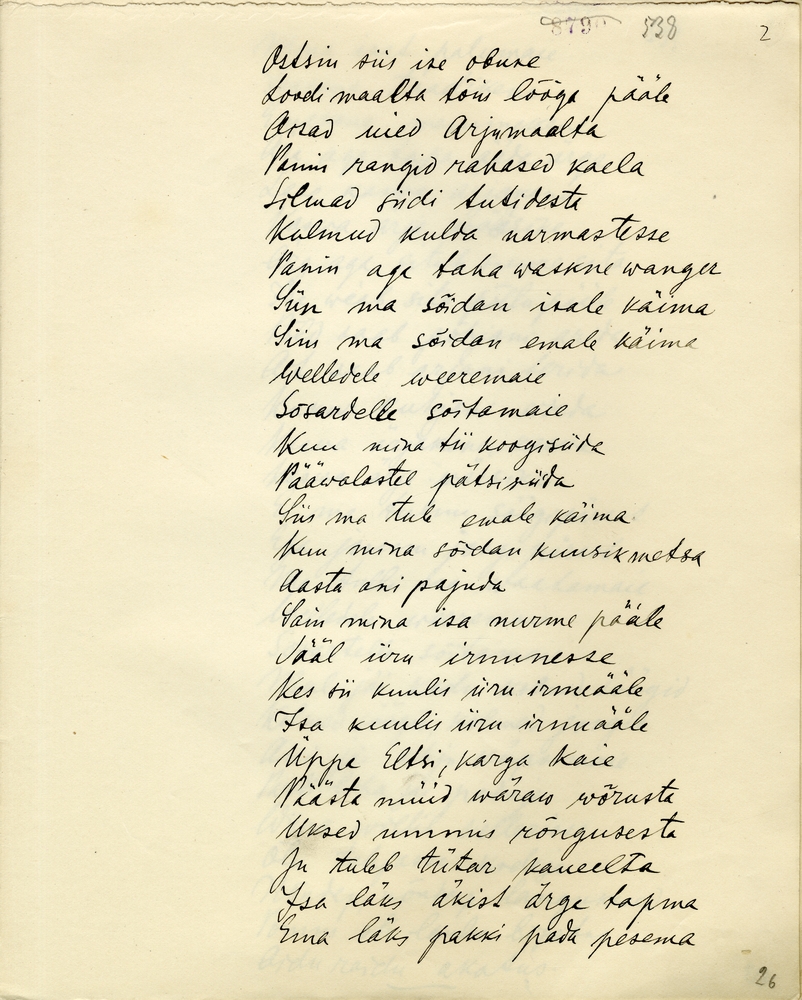 8790 538 2
Ostsin siis ise obuse
Loodi maalta tõin lööga pääle
Orsad nied Arjumaalta
Panin rangid rahased kaela
Silmad siidi tutidesta
Kulmud kulda narmastesse
Panin aga taha waskne wanger
Siin ma sõidan isale käima
Siin ma sõidan emale käima
Welledele weeremaie
Sõsardelle sõitamaie
Kuu mina tii koogisiida
Pääwalastel pätsisiida
Siis ma tule emale käima
Kuu mina sõidan kuusikmetsa
Aasta ani pajuda
Sain mina isa nurme pääle
Jääl üru irnunesse
Kes sii kuulis üru irmeääle
Isa kuulis üru irnuääle
Üppa Eltsi, karga Kaie
Päästa nüüd wäraw wõrusta
Uksed ummis rõngusesta
Ju tuleb tütar kaueelta
Isa läks äkist ärge tapma
Ema läks pakki pada pesema
26